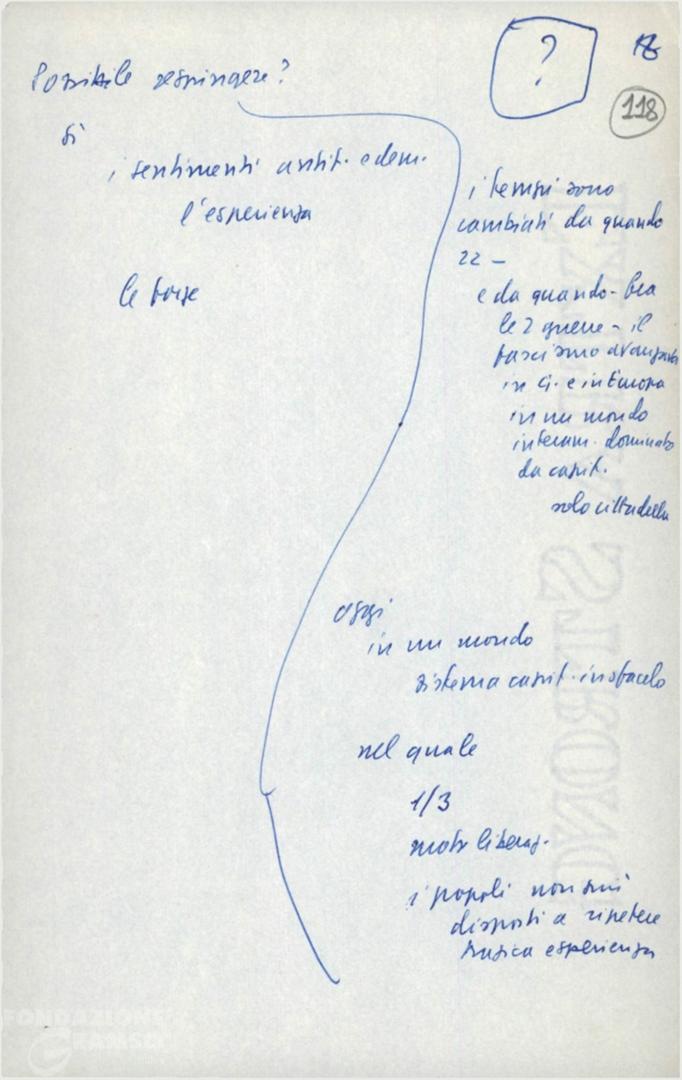 ?
18
118
Possibile respingere?
sì
i sentimenti antif. e dem.
l'esperienza
le forze
i tempi sono
cambiati da quando
22 –
e da quando – tra
le 2 guerre – il
fascismo avanzava
in G. e in Europa
in un mondo
interam. dominato
da capit.
solo cittadella
oggi
in un mondo
sistema capit. in sfacelo
nel quale
1/3
moto liberaz.
i popoli non più
disposti a ripetere
tragica esperienza
FONDAZIONE
GRAMSCI